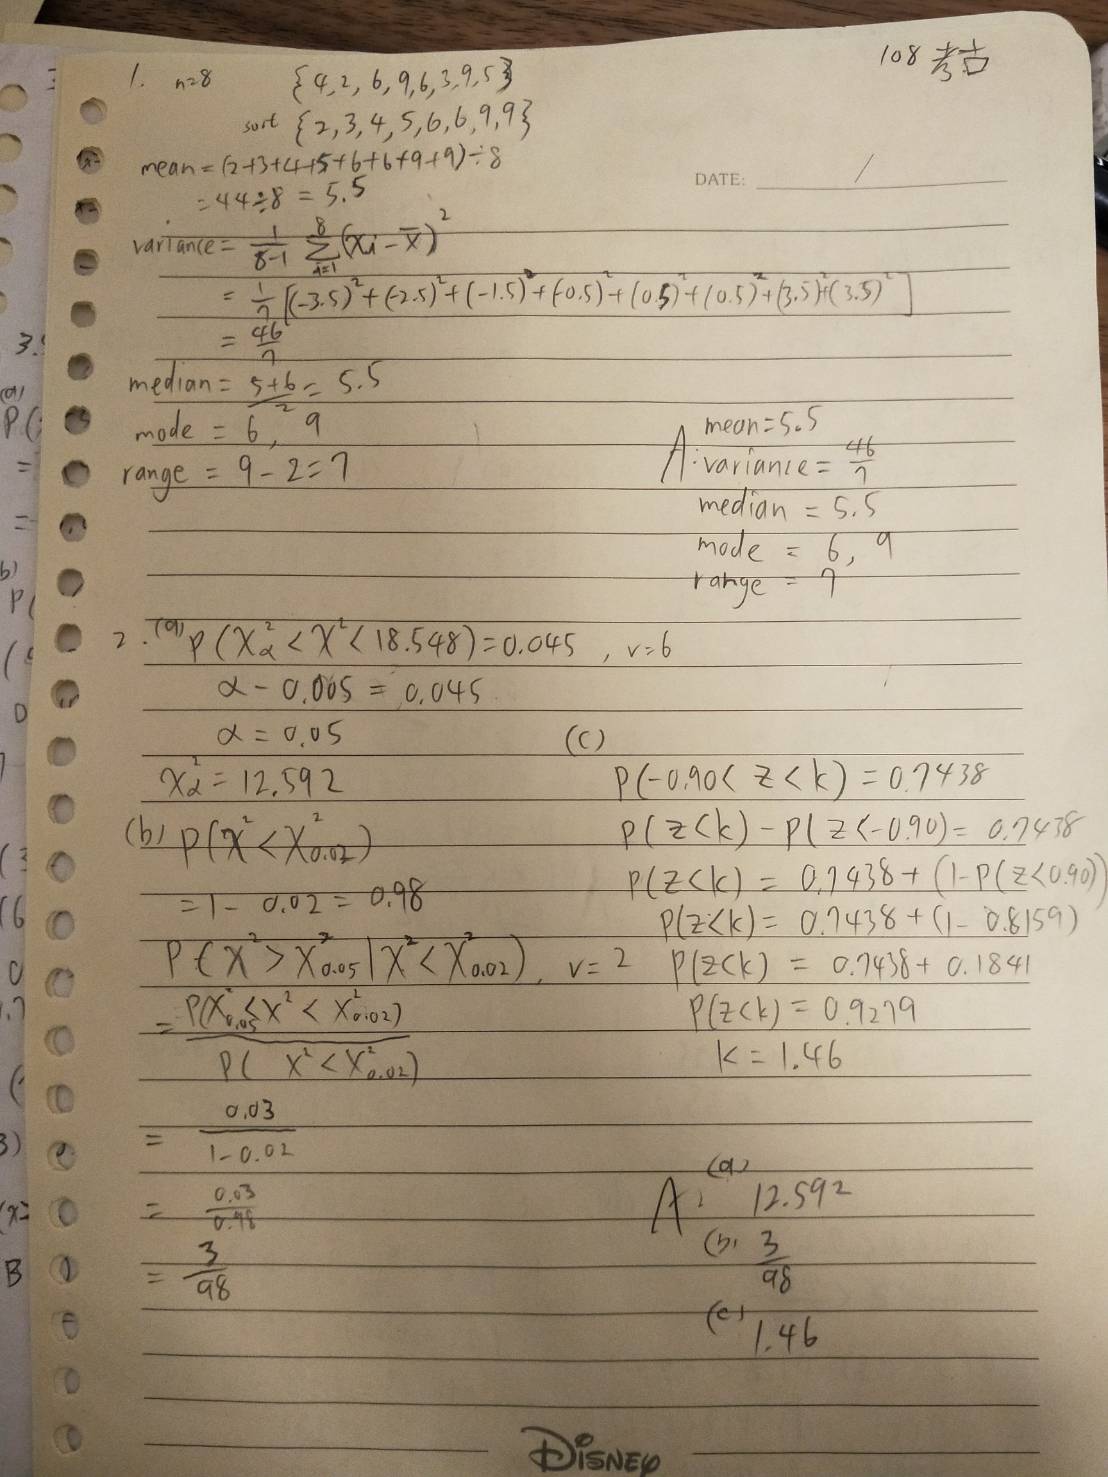 108 考古
1. n=8 {4,2,6,9,6,3,9,5}
sort {2,3,4,5,6,6,9,9}
mean = (2+3+4+5+6+6+9+9)÷8
= 44÷8 = 5.5
DATE: /
variance = 1/(8-1) Σ_{i=1}^{8} (xi - x̄)²
= 1/7 [(-3.5)²+(-2.5)²+(-1.5)²+(-0.5)²+(0.5)²+(0.5)²+(3.5)²+(3.5)²]
= 46/7
median = (5+6)/2 = 5.5
mode = 6, 9
range = 9-2=7
A: mean=5.5
variance = 46/7
median = 5.5
mode = 6, 9
range = 7
2. (a) P(X²_α < X² < 18.548) = 0.045, v=6
α - 0.005 = 0.045
α = 0.05
X²_α = 12.592
(b) P(X² < X²_0.02)
= 1 - 0.02 = 0.98
P(X² > X²_0.05 | X² < X²_0.02), v=2
= P(X²_0.05 < X² < X²_0.02) / P( X² < X²_0.02)
= 0.03 / (1-0.02)
= 0.03/0.98
= 3/98
(c)
P(-0.90 < z < k) = 0.7438
P(z<k) - P(z<-0.90) = 0.7438
P(z<k) = 0.7438 + (1-P(z<0.90))
P(z<k) = 0.7438 + (1 - 0.8159)
P(z<k) = 0.7438 + 0.1841
P(z<k) = 0.9279
k = 1.46
A: (a) 12.592
(b) 3/98
(c) 1.46
DISNEY